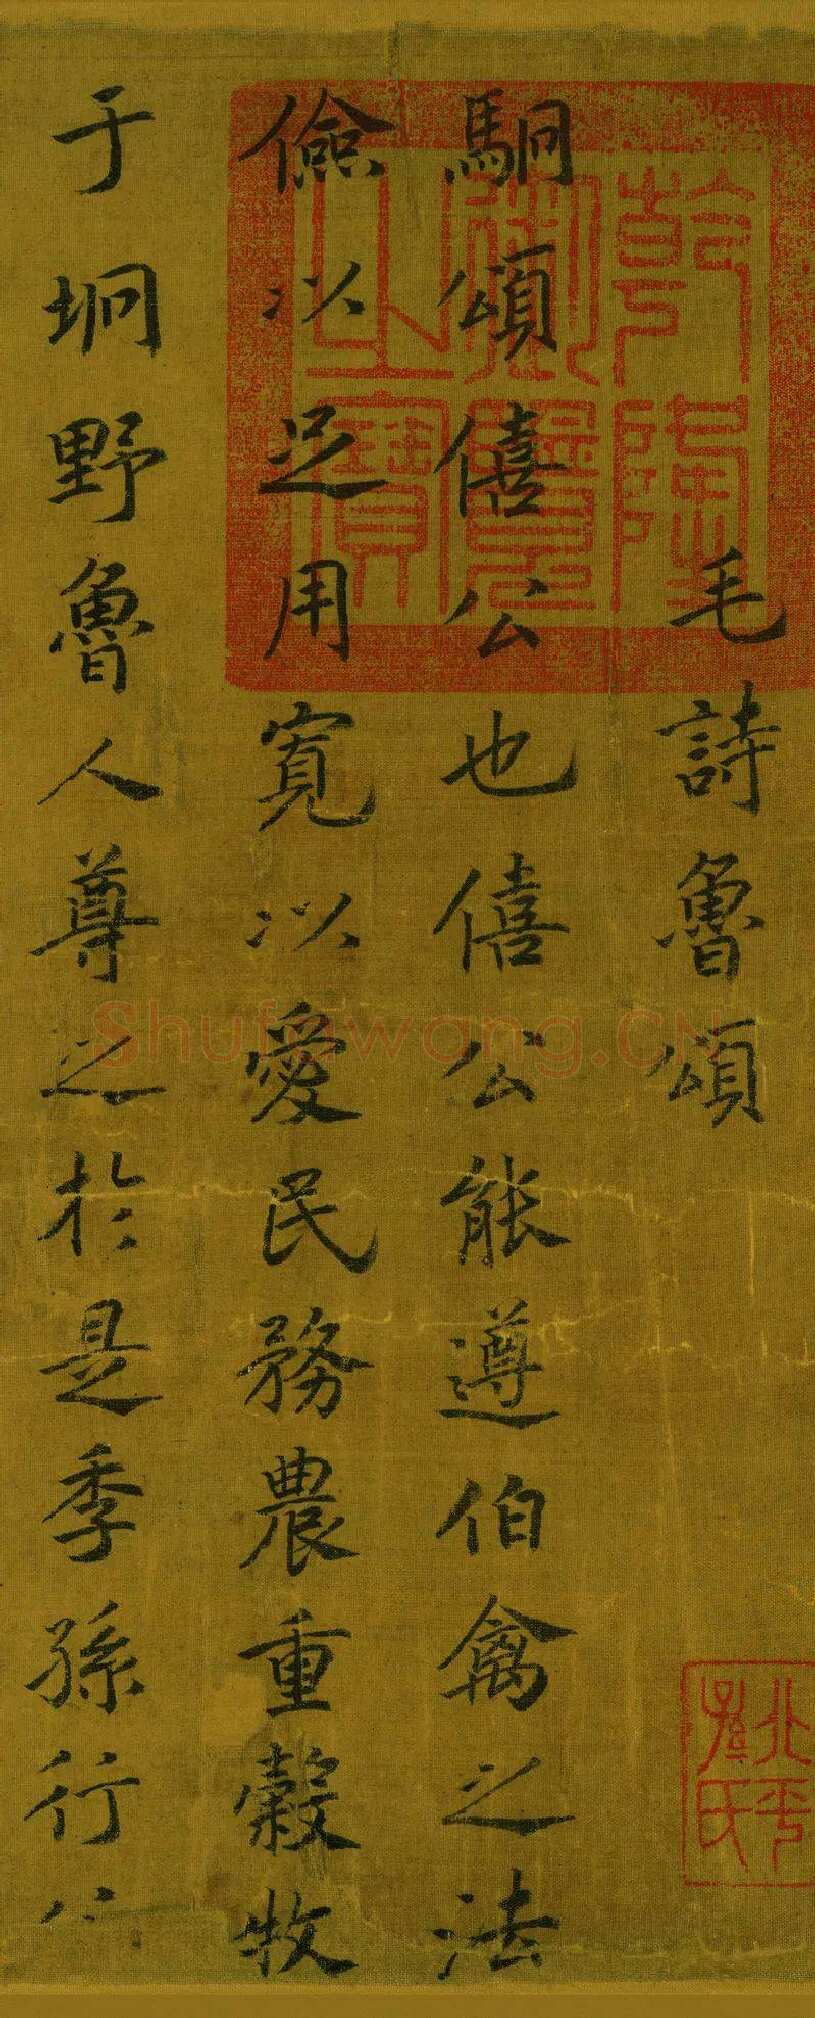 毛詩魯頌
駉頌僖公也僖公能遵伯禽之法
儉以足用寬以愛民務農重穀牧
于坰野魯人尊之於是季孫行父
乾隆御覽之寶
北平孫氏
Shufawang.CN